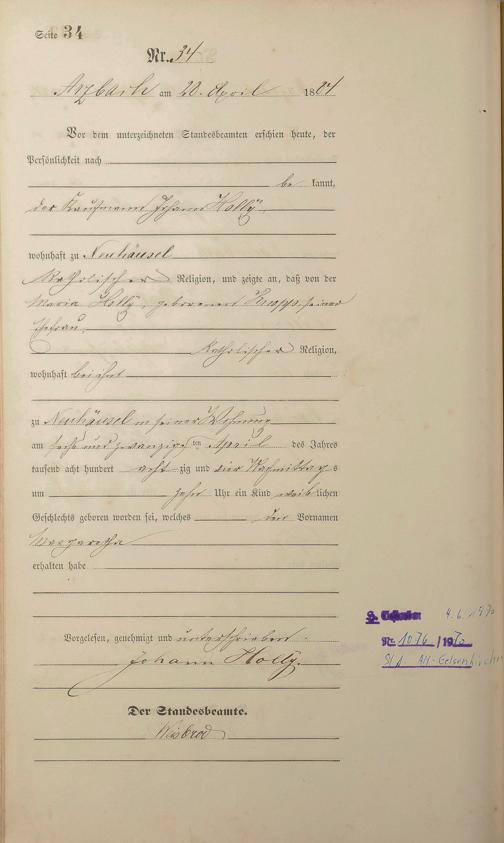 Seite 34
Nr. 34
Arzbach am 28. April 1884
Vor dem unterzeichneten Standesbeamten erschien heute, der
Persönlichkeit nach
be kannt,
der Kaufmann Johann Holly
wohnhaft zu Neuhäusel
katholischer Religion, und zeigte an, daß von der
Maria Holly, geborenen Knopp, seiner
Ehefrau,
katholischer Religion,
wohnhaft bei ihm
zu Neuhäusel in seiner Wohnung
am sechs und zwanzigsten April des Jahres
tausend acht hundert acht zig und vier Nachmittags
um zehn Uhr ein Kind weiblichen
Geschlechts geboren worden sei, welches den Vornamen
Margaretha
erhalten habe
Vorgelesen, genehmigt und unterschrieben.
Johann Holly.
Der Standesbeamte.
Wisbrod
4.6.1970
Nr. 1076/1970